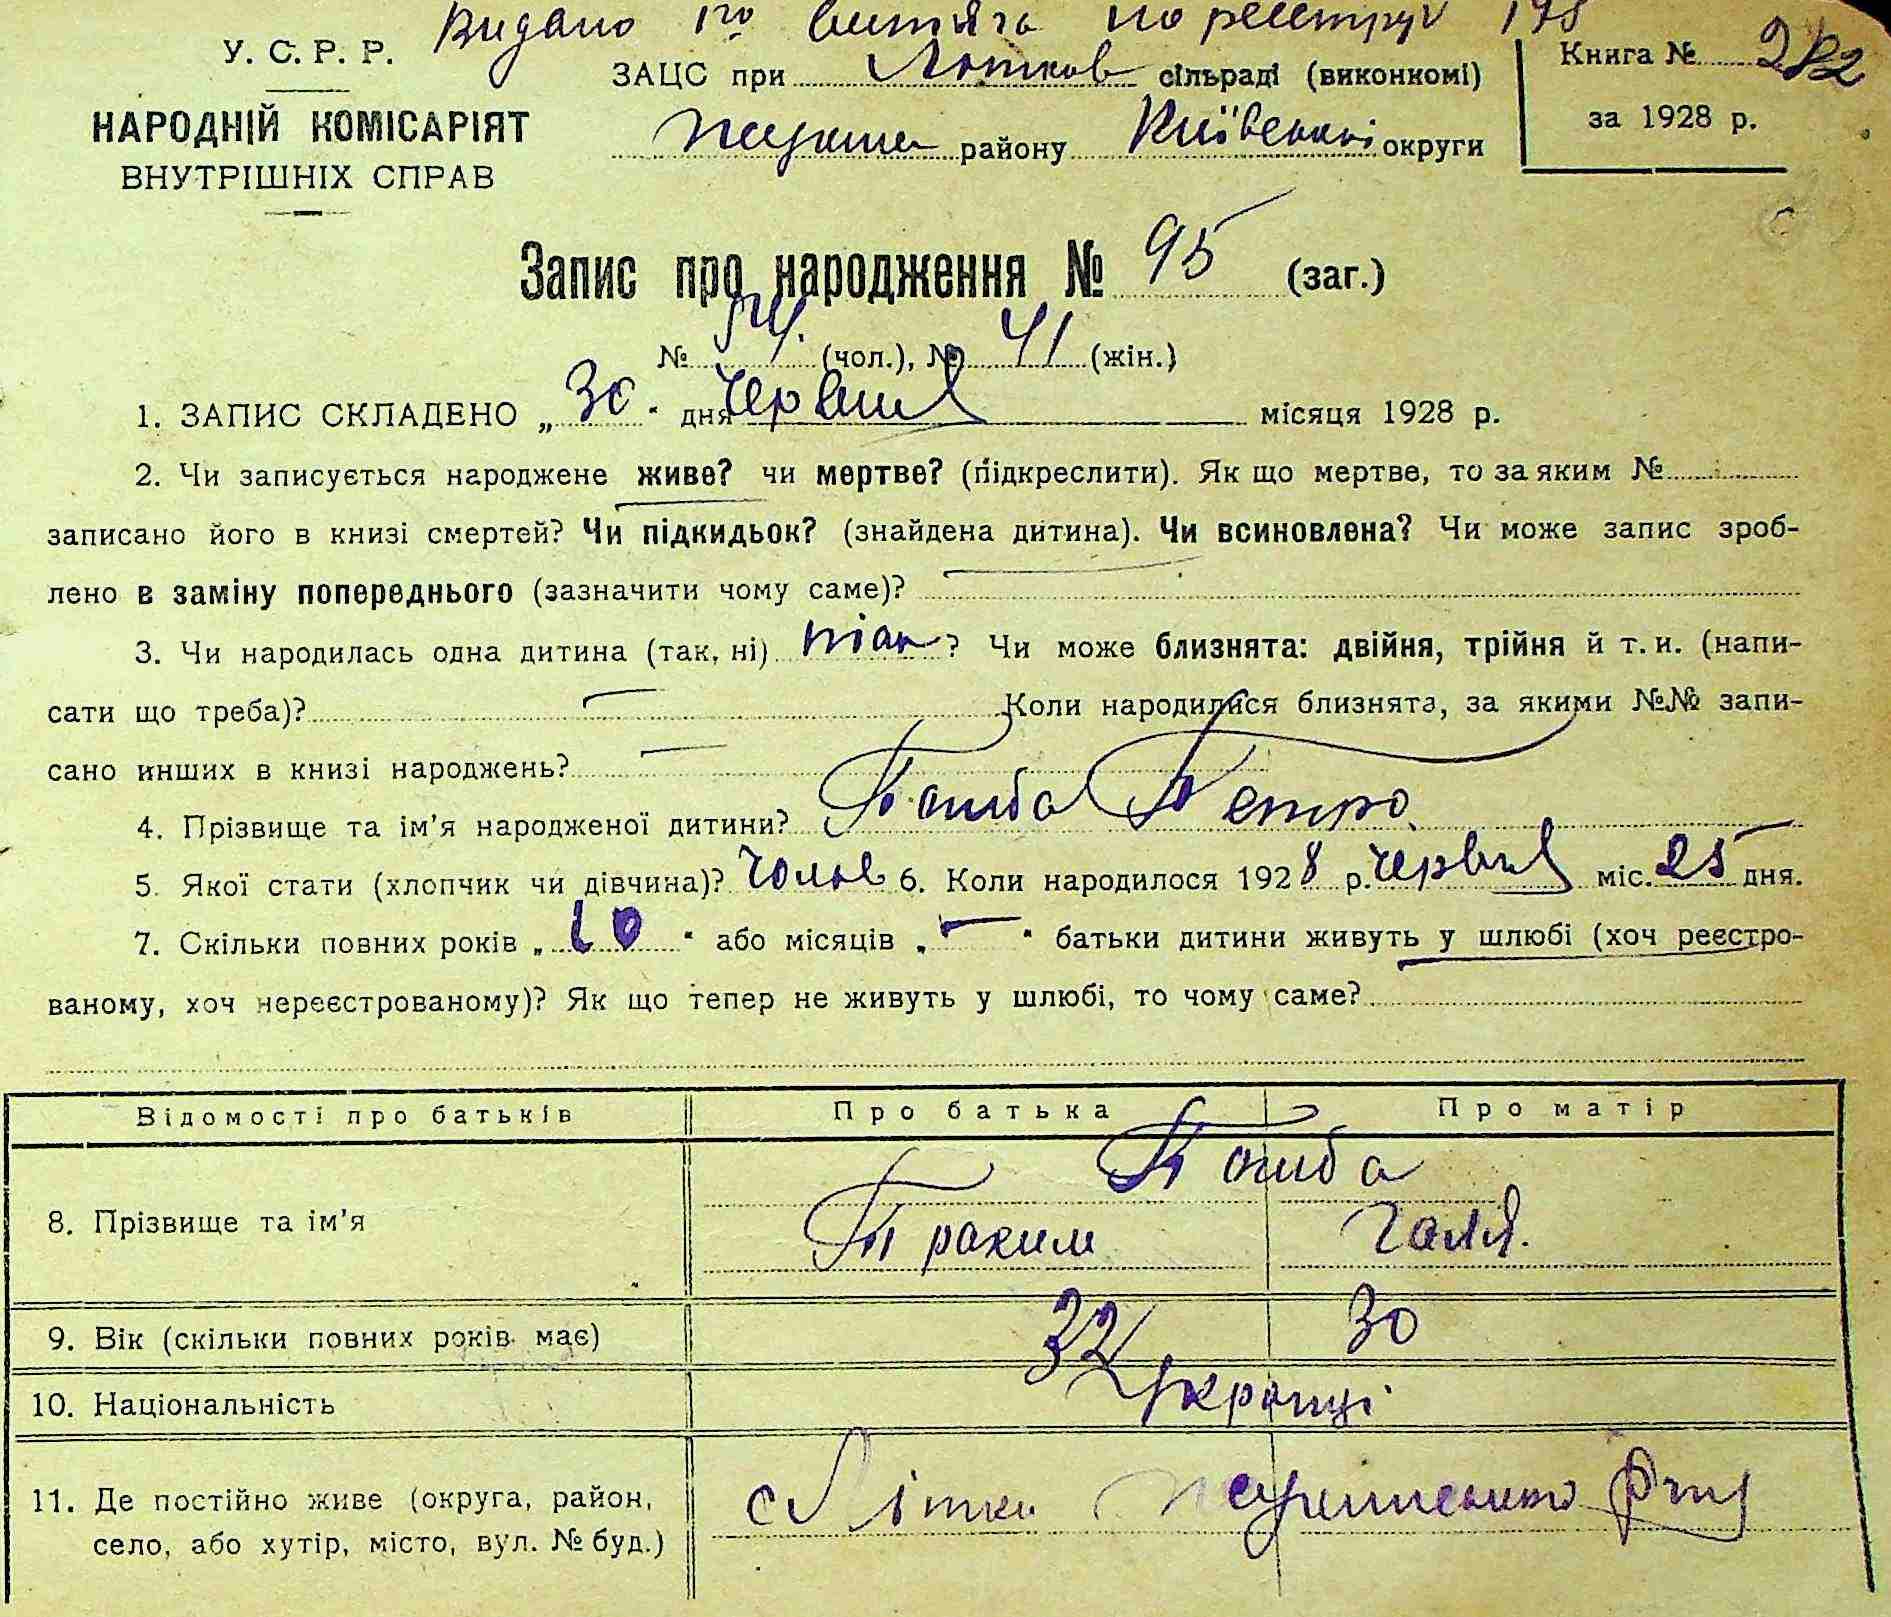 Видано 1го витяга по реєстру 178
У. С. Р. Р.
НАРОДНІЙ КОМІСАРІЯТ
ВНУТРІШНІХ СПРАВ
ЗАЦС при Літков сільраді (виконкомі)
району Київської округи
Книга № 282
за 1928 р.
Запис про народження № 95 (заг.)
№ 54 (чол.), № 41 (жін.)
1. ЗАПИС СКЛАДЕНО „30" дня червня місяця 1928 р.
2. Чи записується народжене живе? чи мертве? (підкреслити). Як що мертве, то за яким №
записано його в книзі смертей? Чи підкидьок? (знайдена дитина). Чи всиновлена? Чи може запис зроб-
лено в заміну попереднього (зазначити чому саме)?
3. Чи народилась одна дитина (так, ні) так? Чи може близнята: двійня, трійня й т. и. (напи-
сати що треба)? — Коли народилися близнята, за якими №№ запи-
сано инших в книзі народжень? —
4. Прізвище та ім'я народженої дитини? Петро
5. Якої стати (хлопчик чи дівчина)? Чолов 6. Коли народилося 1928 р. червня міс. 25 дня.
7. Скільки повних років „10" або місяців „—" батьки дитини живуть у шлюбі (хоч реєстро-
ваному, хоч нереєстрованому)? Як що тепер не живуть у шлюбі, то чому саме?
Відомості про батьків Про батька Про матір
8. Прізвище та ім'я Галя.
9. Вік (скільки повних років має) 32 30
10. Національність Українці
11. Де постійно живе (округа, район, с Літки
село, або хутір, місто, вул. № буд.)